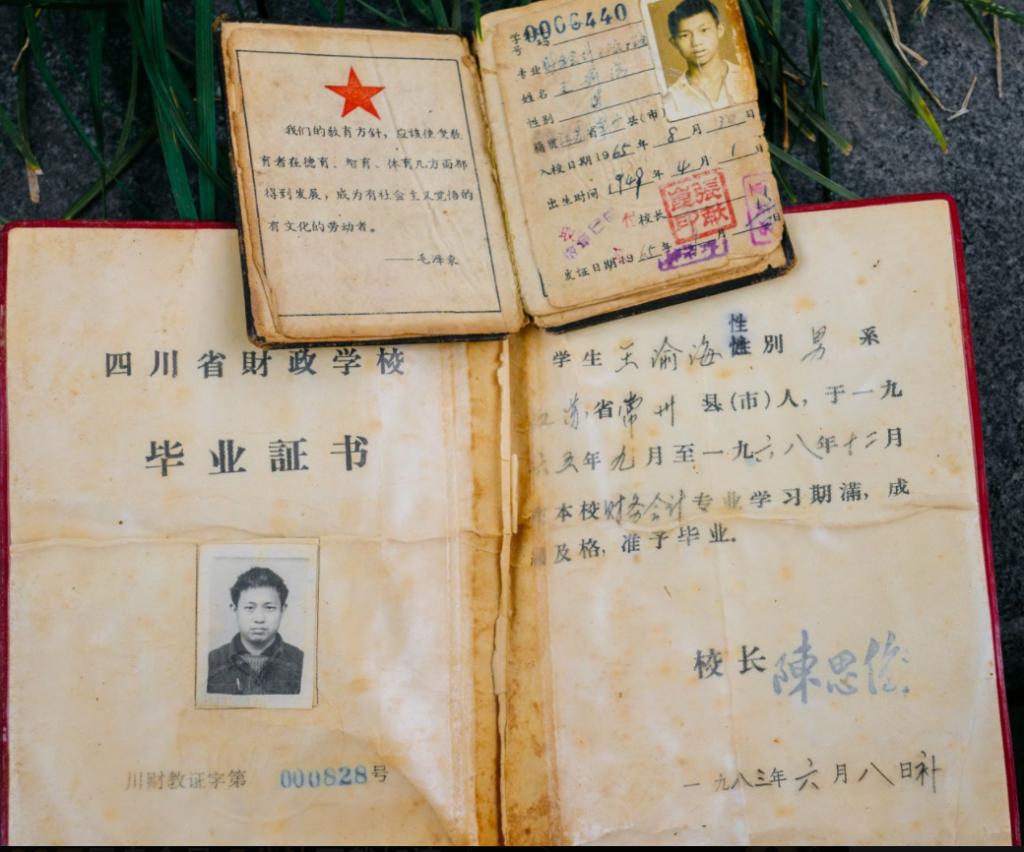 我们的教育方针，应该使受教
育者在德育、智育、体育几方面都
得到发展，成为有社会主义觉悟的
有文化的劳动者。
——毛泽东
学号 0006440
专业
姓名 王渝海
性别 男
籍贯 江苏省 县(市)
入校日期1965年8月30日
出生时间1949年4月1日
校长
張献
印
发证日期1965年 月 日
四川省財政学校
毕业証书
川财教证字第 000828号
学生王渝海性别男系
江苏省常州县(市)人，于一九
六五年九月至一九六八年十二月
在本校财务会计专业学习期滿，成
績及格，准予毕业。
校长 陳思
一九八三年六月八日补